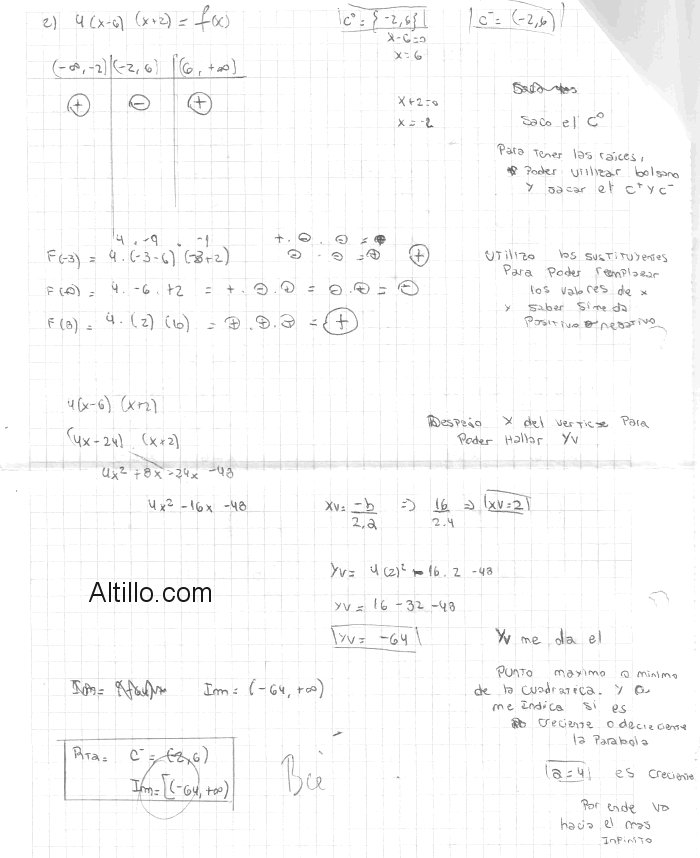 2) 4(x-6) (x+2) = f(x)
C° = {-2,6}
C⁻ = (-2,6)
x-6=0
x=6
(-∞,-2) (-2,6) (6,+∞)
+ - +
x+2=0
x=-2
Saco el C°
Para tener las raices,
Poder utilizar bolzano
y sacar el C⁺ y C⁻
4 . -9 . -1
F(-3) = 4.(-3-6) (-3+2)
+ . - . - = +
- . - = + +
F(0) = 4. -6 . +2 = + . - . + = - . + = -
F(8) = 4. (2) (10) = + . + . + = +
Utilizo los sustituyentes
Para poder remplazar
los valores de x
y saber si me da
Positivo o negativo
4(x-6) (x+2)
(4x-24) (x+2)
4x² +8x -24x -48
4x² -16x -48
Despejo x del vertice Para
Poder Hallar Yv
xv= -b/2.a => 16/2.4 => xv=2
Yv= 4(2)² - 16. 2 -48
Yv= 16 -32 -48
Yv= -64
Altillo.com
Yv me da el
Punto maximo o minimo
de la cuadratica. Y a
me indica si es
creciente o decreciente
la Parabola
Im= (-64, +∞)
Rta= C⁻= (-2,6)
Im= [(-64,+∞)
a=4 es creciente
Por ende va
hacia el mas
infinito